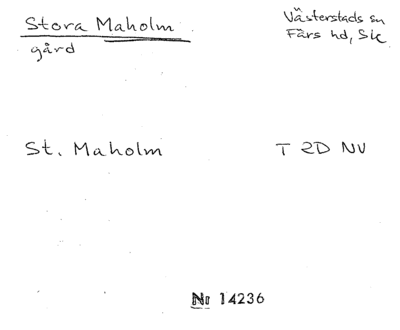 Stora Maholm
gård
Västerstads sn
Färs hd, Sk
St. Maholm
T 2D NV
Nr 14236